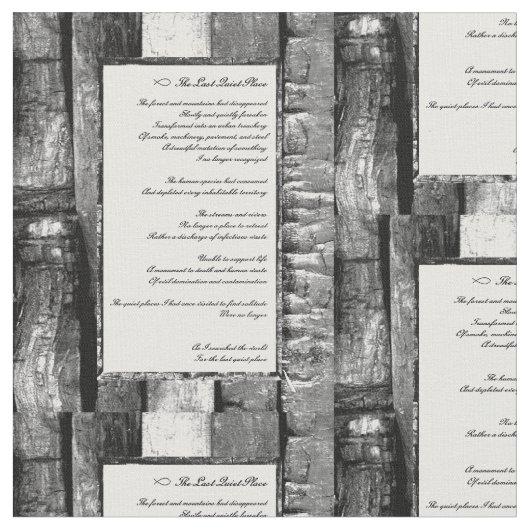 The Last Quiet Place
The forest and mountains had disappeared
Slowly and quietly forsaken
Transformed into an urban treachery
Of smoke, machinery, pavement, and steel
A dreadful mutation of something
I no longer recognized
The human species had consumed
And depleted every inhabitable territory
The streams and rivers
No longer a place to retreat
Rather a discharge of infectious waste
Unable to support life
A monument to death and human waste
Of evil domination and contamination
The quiet places I had once visited to find solitude
Were no longer
As I searched the world
For the last quiet place
The Last Quiet Place
The forest and mountains had disappeared
Slowly and quietly forsaken
No lon
Rather a discharg
A monument to
Of evil domina
The quiet places I had once
The forest and moun
Slow
Transformed
Of smoke, machine
A dreadful
The human
And depleted every
T
No lon
Rather a discharge
A monument to
Of evil domina
The quiet places I had once